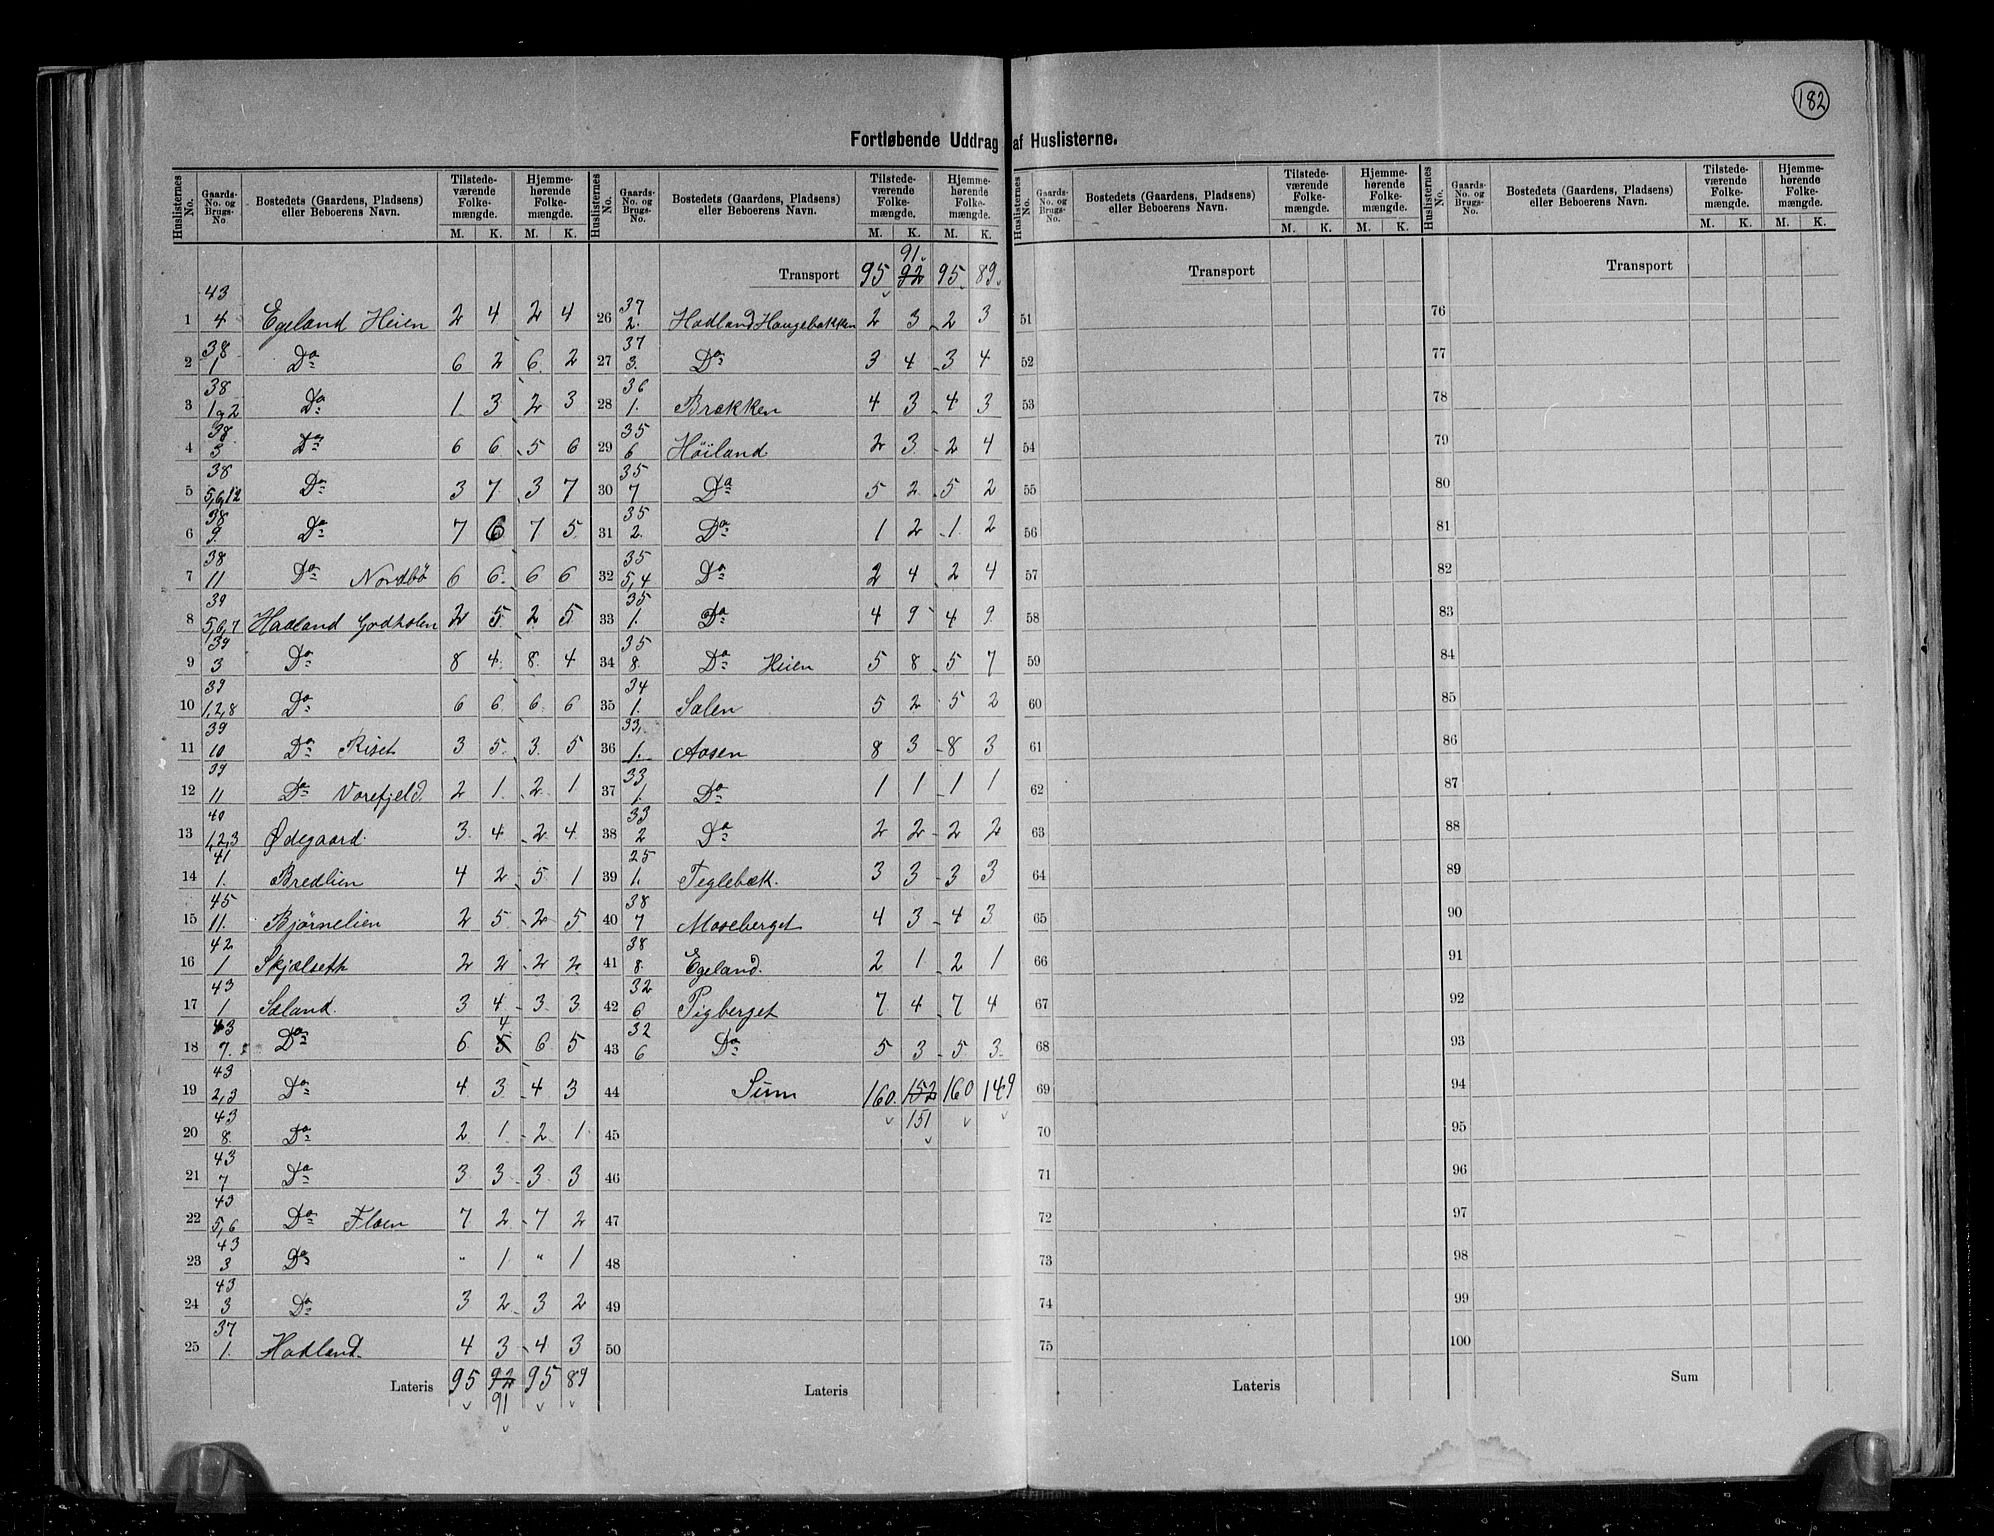 182
Fortløbende Uddrag af Huslisterne.
Huslisternes No. | Gaards-No. og Brugs-No. | Bostedets (Gaardens, Pladsens) eller Beboerens Navn. | Tilstedeværende Folkemængde. M. K. | Hjemmehørende Folkemængde. M. K.
1 | 43 4 | Egeland Heien | 2 | 4 | 2 | 4
2 | 38 1 | Do | 6 | 2 | 6 | 2
3 | 38 1 og 2 | Do | 1 | 3 | 2 | 3
4 | 38 3 | Do | 6 | 6 | 5 | 6
5 | 38 5,6,12 | Do | 3 | 7 | 3 | 7
6 | 38 9 | Do | 7 | 6 | 7 | 5
7 | 38 11 | Do Nordbö | 6 | 6 | 6 | 6
8 | 39 5,6,7 | Hadland Godholen | 2 | 5 | 2 | 5
9 | 39 3 | Do | 8 | 4 | 8 | 4
10 | 39 1,2,8 | Do | 6 | 6 | 6 | 6
11 | 39 10 | Do Riset | 3 | 5 | 3 | 5
12 | 39 11 | Do Varefjeld | 2 | 1 | 2 | 1
13 | 40 1,2,3 | Ødegaard | 3 | 4 | 2 | 4
14 | 41 1. | Bredlien | 4 | 2 | 5 | 1
15 | 45 11. | Bjørnelien | 2 | 5 | 2 | 5
16 | 42 1 | Skjælseth | 2 | 2 | 2 | 2
17 | 43 1 | Sæland. | 3 | 4 | 3 | 3
18 | 43 7. | Do | 6 | 5 4 | 6 | 5
19 | 43 2,3 | Do | 4 | 3 | 4 | 3
20 | 43 8. | Do | 2 | 1 | 2 | 1
21 | 43 7 | Do | 3 | 3 | 3 | 3
22 | 43 5,6 | Do Floen | 7 | 2 | 7 | 2
23 | 43 3 | Do | " | 1 | " | 1
24 | 43 3 | Do | 3 | 2 | 3 | 2
25 | 37 1. | Hadland. | 4 | 3 | 4 | 3
Lateris | 95 | 92 91 | 95 | 89
Huslisternes No. | Gaards-No. og Brugs-No. | Bostedets (Gaardens, Pladsens) eller Beboerens Navn. | Tilstedeværende Folkemængde. M. K. | Hjemmehørende Folkemængde. M. K.
Transport | 95 | 91 92 | 95 | 89
26 | 37 2. | Hadland Haugebakken | 2 | 3 | 2 | 3
27 | 37 3. | Do | 3 | 4 | 3 | 4
28 | 36 1. | Brækken | 4 | 3 | 4 | 3
29 | 35 6 | Høiland | 2 | 3 | 2 | 4
30 | 35 7 | Do | 5 | 2 | 5 | 2
31 | 35 2. | Do | 1 | 2 | 1 | 2
32 | 35 5,4 | Do | 2 | 4 | 2 | 4
33 | 35 1. | Do | 4 | 9 | 4 | 9
34 | 35 8. | Do Heien | 5 | 8 | 5 | 7
35 | 34 1. | Salen | 5 | 2 | 5 | 2
36 | 33, 1. | Aasen | 8 | 3 | 8 | 3
37 | 33 1. | Do | 1 | 1 | 1 | 1
38 | 33 2 | Do | 2 | 2 | 2 | 2
39 | 25 1. | Teglebæk. | 3 | 3 | 3 | 3
40 | 38 7 | Moseberget | 4 | 3 | 4 | 3
41 | 38 8. | Egeland. | 2 | 1 | 2 | 1
42 | 32 6 | Pigberget | 7 | 4 | 7 | 4
43 | 32 6 | Do | 5 | 3 | 5 | 3
44 | Sum | 160 | 152 151 | 160 | 149
45
46
47
48
49
50
Lateris
Huslisternes No. | Gaards-No. og Brugs-No. | Bostedets (Gaardens, Pladsens) eller Beboerens Navn. | Tilstedeværende Folkemængde. M. K. | Hjemmehørende Folkemængde. M. K.
Transport
51
52
53
54
55
56
57
58
59
60
61
62
63
64
65
66
67
68
69
70
71
72
73
74
75
Lateris
Huslisternes No. | Gaards-No. og Brugs-No. | Bostedets (Gaardens, Pladsens) eller Beboerens Navn. | Tilstedeværende Folkemængde. M. K. | Hjemmehørende Folkemængde. M. K.
Transport
76
77
78
79
80
81
82
83
84
85
86
87
88
89
90
91
92
93
94
95
96
97
98
99
100
Sum